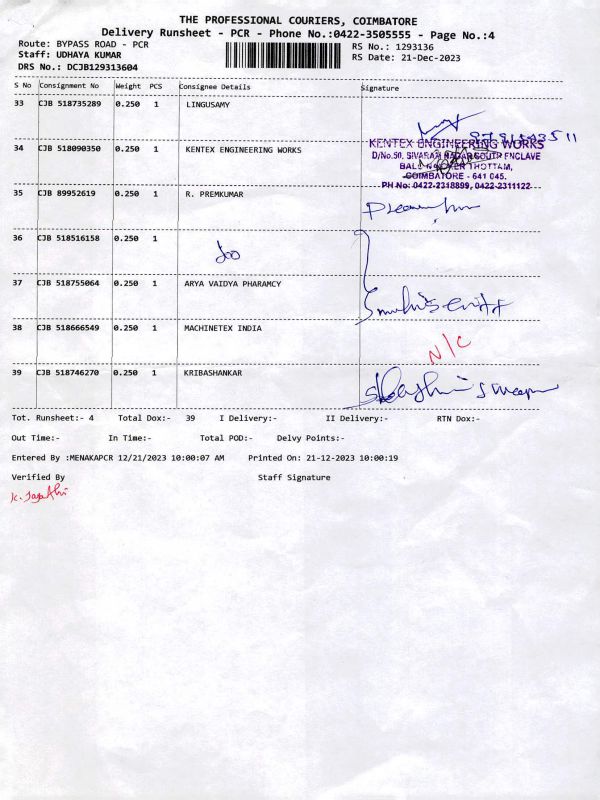 THE PROFESSIONAL COURIERS, COIMBATORE
Delivery Runsheet - PCR - Phone No.:0422-3505555 - Page No.:4
Route: BYPASS ROAD - PCR
RS No.: 1293136
Staff: UDHAYA KUMAR
RS Date: 21-Dec-2023
DRS No.: DCJB129313604
S No Consignment No Weight PCS Consignee Details Signature
33 CJB 518735289 0.250 1 LINGUSAMY
34 CJB 518090350 0.250 1 KENTEX ENGINEERING WORKS
KENTEX ENGINEERING WORKS
D/No.50, SIVARAM NAGAR SOUTH ENCLAVE
THOTTAM,
COIMBATORE - 641 045.
PH No: 0422-2318899, 0422-2311122
35 CJB 89952619 0.250 1 R. PREMKUMAR
36 CJB 518516158 0.250 1
37 CJB 518755064 0.250 1 ARYA VAIDYA PHARAMCY
38 CJB 518666549 0.250 1 MACHINETEX INDIA
N/C
39 CJB 518746270 0.250 1 KRIBASHANKAR
Tot. Runsheet:- 4 Total Dox:- 39 I Delivery:- II Delivery:- RTN Dox:-
Out Time:- In Time:- Total POD:- Delvy Points:-
Entered By :MENAKAPCR 12/21/2023 10:00:07 AM Printed On: 21-12-2023 10:00:19
Verified By Staff Signature